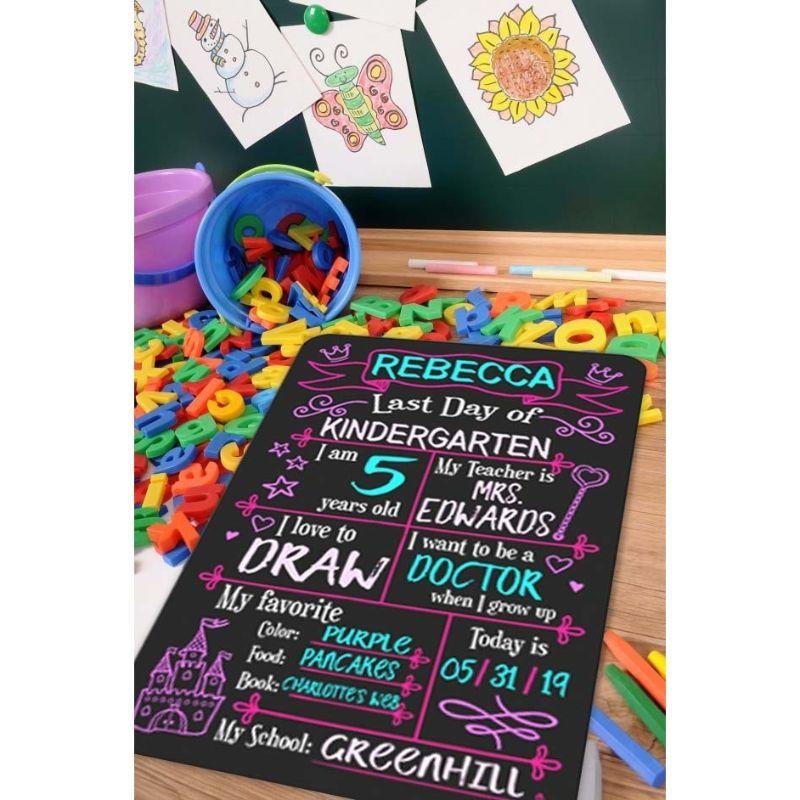 REBECCA
Last Day of
KINDERGARTEN
I am
5
years old
My Teacher is
MRS.
EDWARDS
I love to
DRAW
I want to be a
DOCTOR
when I grow up
My favorite
Color: PURPLE
Food: PANCAKES
Book: CHARLOTTE'S WEB
Today is
05/31/19
My School: GREENHILL